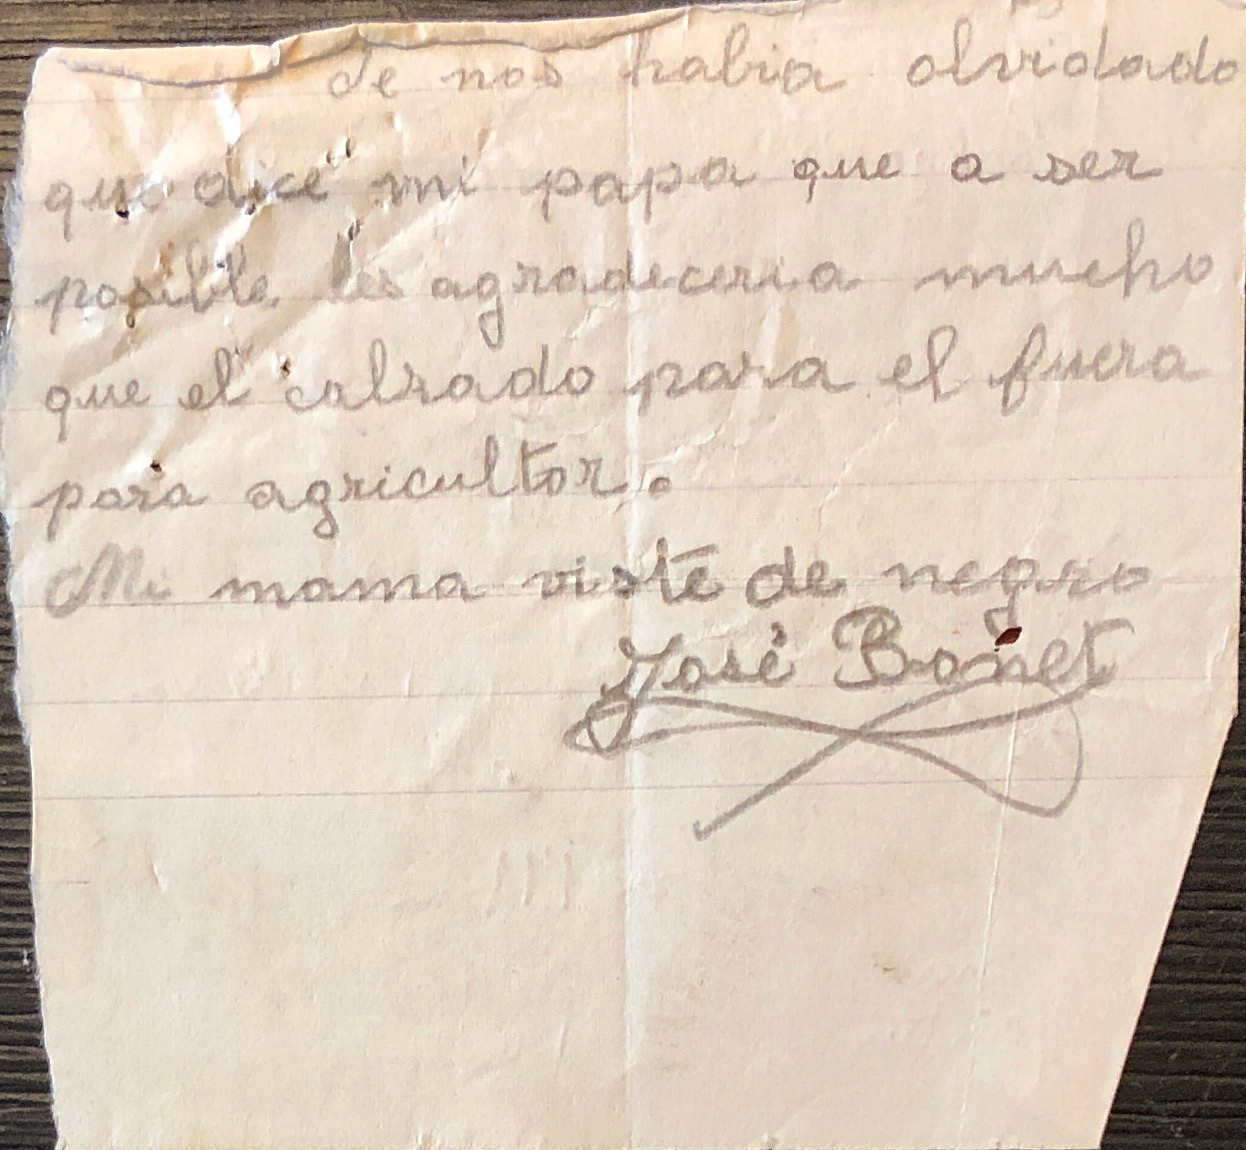 Se nos habia olvidado
que dice mi papa que a ser
posible les agradeceria mucho
que el calzado para el fuera
para agricultor.
Mi mama viste de negro
José Bonet